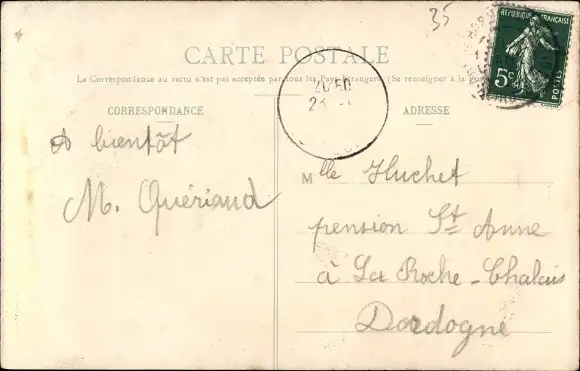 35
RÉPUBLIQUE FRANÇAISE
5c
POSTES
CARTE POSTALE
La Correspondance au recto n'est pas acceptée par tous les Pays Étrangers (Se renseigner à la
20 50
CORRESPONDANCE
ADRESSE
A bientôt
M. Quériaud
Mlle Huchet
pension St Anne
à La Roche-Chalais
Dordogne